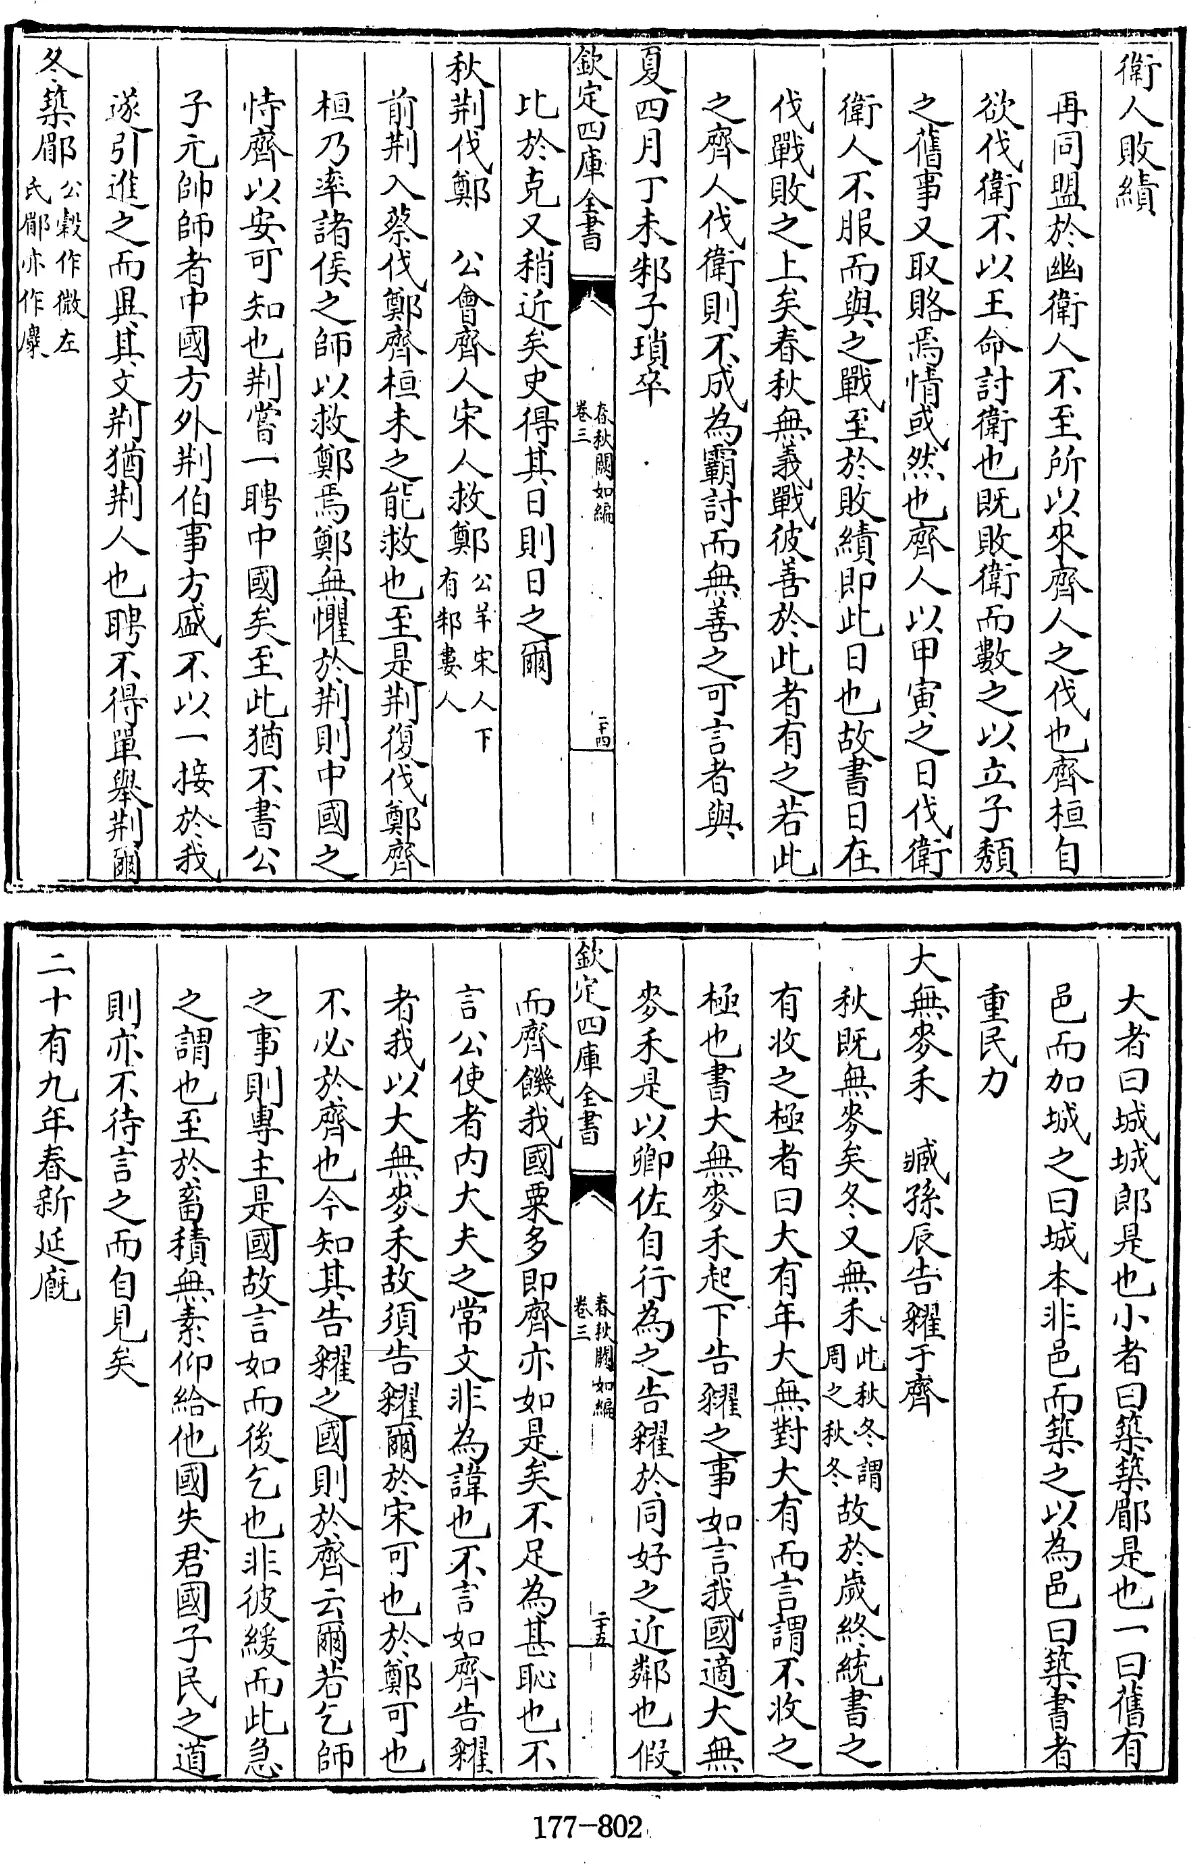 衛人敗績
再同盟於幽衛人不至所以來齊人之伐也齊桓自
欲伐衛不以王命討衛也既敗衛而數之以立子頽
之舊事又取賂焉情或然也齊人以甲寅之日伐衛
衛人不服而與之戰至於敗績即此日也故書日在
伐戰敗之上矣春秋無義戰彼善於此者有之若此
之齊人伐衛則不成為霸討而無善之可言者與
夏四月丁未邾子瑣卒
欽定四庫全書
春秋闕如編
卷三
二十四
比於克又稍近矣史得其日則日之爾
秋荆伐鄭 公會齊人宋人救鄭公羊宋人下
有邾婁人
前荆入蔡伐鄭齊桓未之能救也至是荆復伐鄭齊
桓乃率諸侯之師以救鄭焉鄭無懼於荆則中國之
恃齊以安可知也荆嘗一聘中國矣至此猶不書公
子元帥師者中國方外荆伯事方盛不以一接於我
遂引進之而異其文荆猶荆人也聘不得單舉荆爾
冬築郿公穀作微左
氏郿亦作麋
大者曰城城郎是也小者曰築築郿是也一曰舊有
邑而加城之曰城本非邑而築之以為邑曰築書者
重民力
大無麥禾 臧孫辰告糴于齊
秋既無麥矣冬又無禾此秋冬謂
周之秋冬故於歲終統書之
有收之極者曰大有年大無對大有而言謂不收之
極也書大無麥禾起下告糴之事如言我國適大無
麥禾是以卿佐自行為之告糴於同好之近鄰也假
欽定四庫全書
春秋闕如編
卷三
二十五
而齊饑我國粟多即齊亦如是矣不足為甚恥也不
言公使者内大夫之常文非為諱也不言如齊告糴
者我以大無麥禾故須告糴爾於宋可也於鄭可也
不必於齊也今知其告糴之國則於齊云爾若乞師
之事則專主是國故言如而後乞也非彼緩而此急
之謂也至於畜積無素仰給他國失君國子民之道
則亦不待言之而自見矣
二十有九年春新延廐
177-802